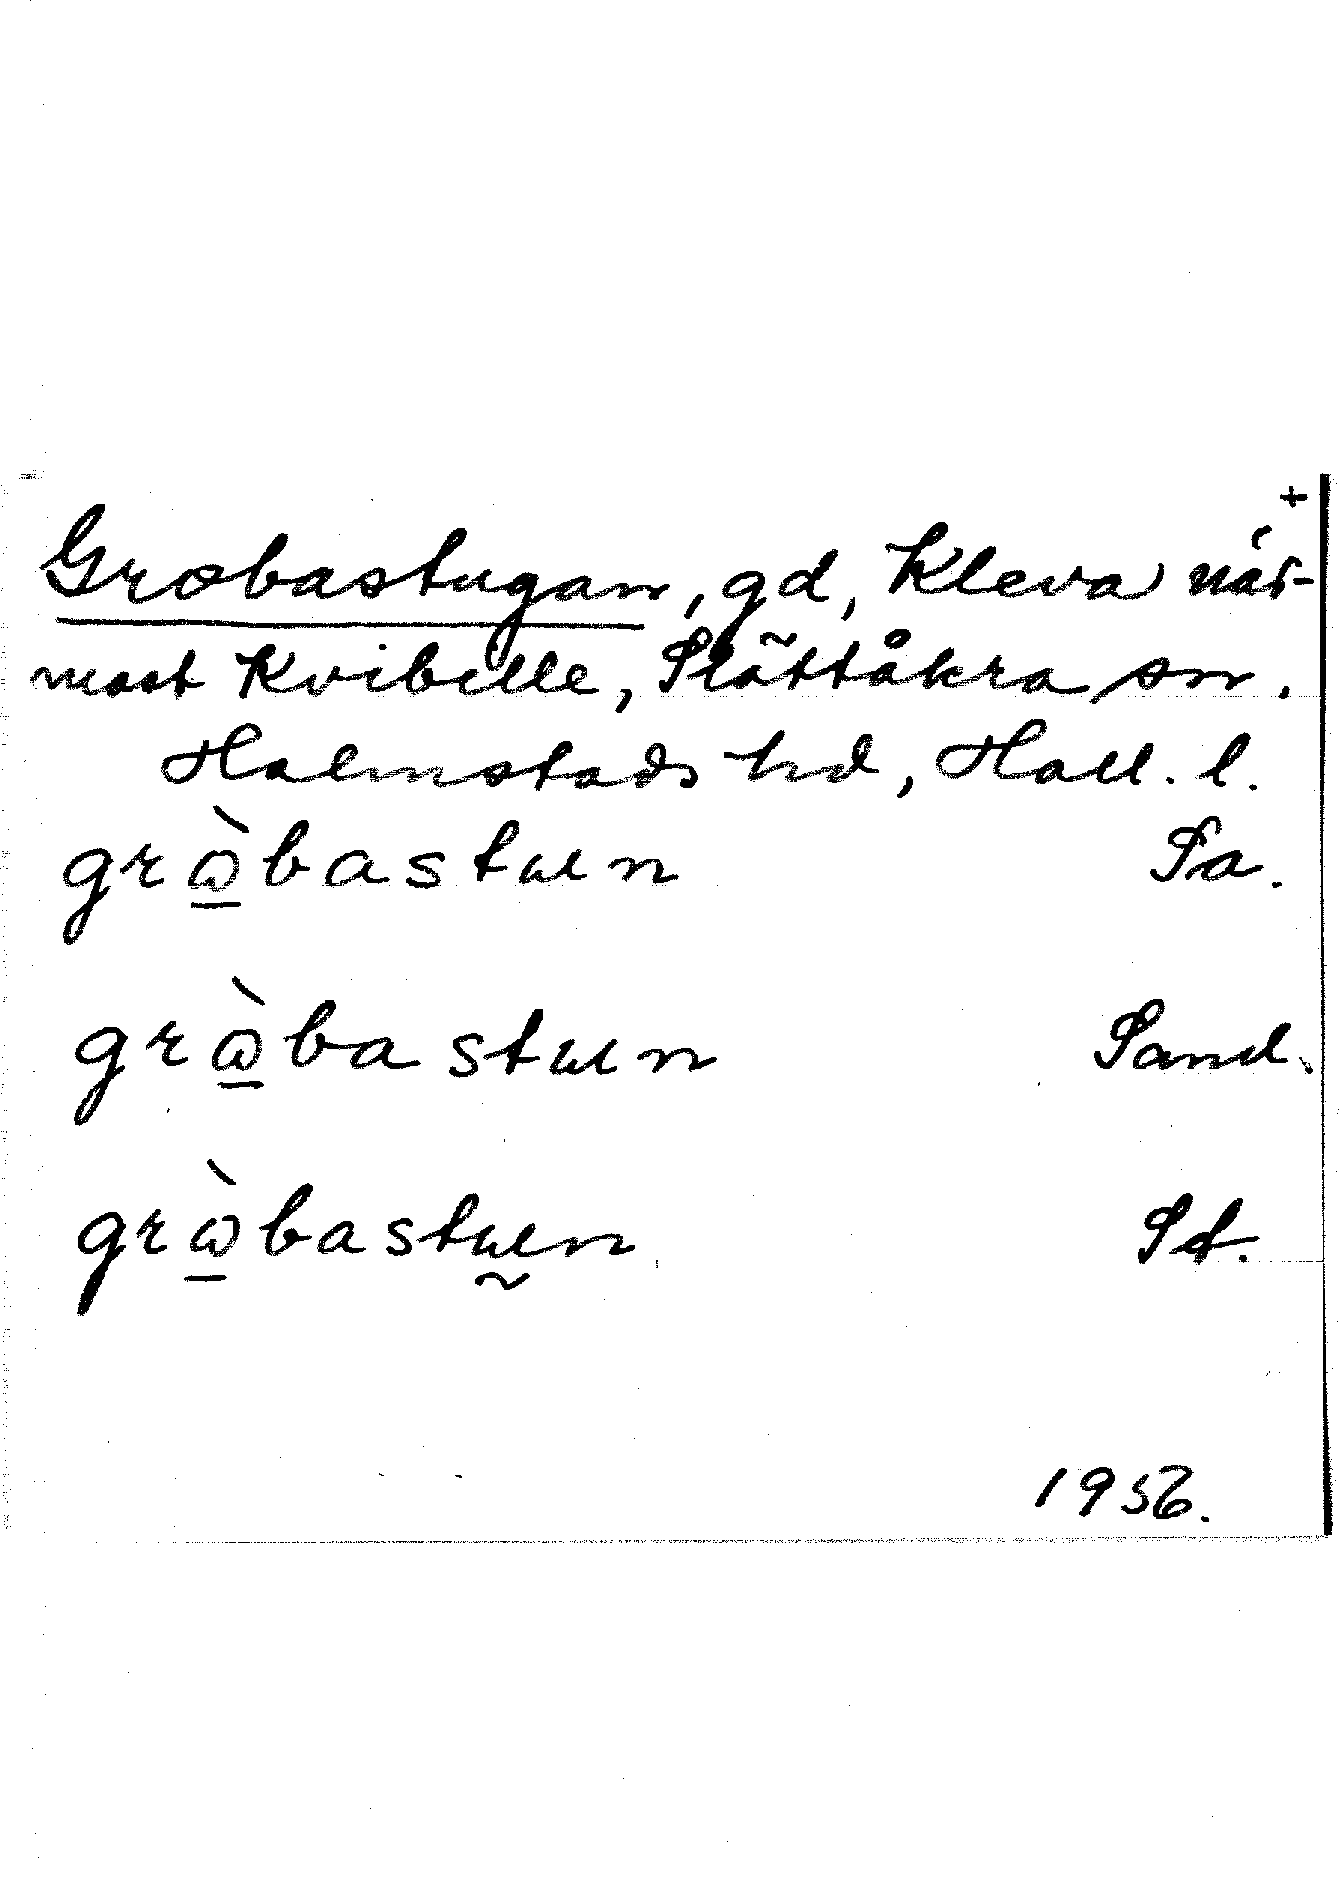 +
Grobastugan, gd, Kleva när-
mast Kvibille, Slättåkra sn.
Holmstads hd, Hall. l.
grὼ̲bastɯn Sa.
grὼ̲bastɯn Sand.
grὼ̲bastɯ̰n St.
1956.